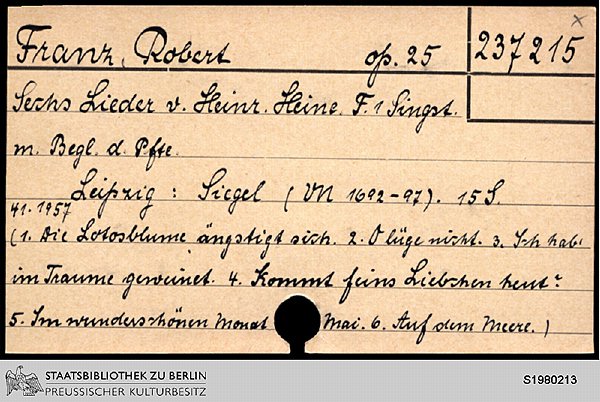 Franz, Robert op. 25 237215 x
Sechs Lieder v. Heinr. Heine. F. 1 Singst.
m. Begl. d. Pfte.
Leipzig: Siegel (VN 1692-97). 15 S.
41.1957
(1. Die Lotosblume ängstigt sich. 2. O lüge nicht. 3. Ich hab'
im Traume geweinet. 4. Kommt feins Liebchen heut?
5. Im wunderschönen Monat Mai. 6. Auf dem Meere.)
STAATSBIBLIOTHEK ZU BERLIN
PREUSSISCHER KULTURBESITZ
S1980213